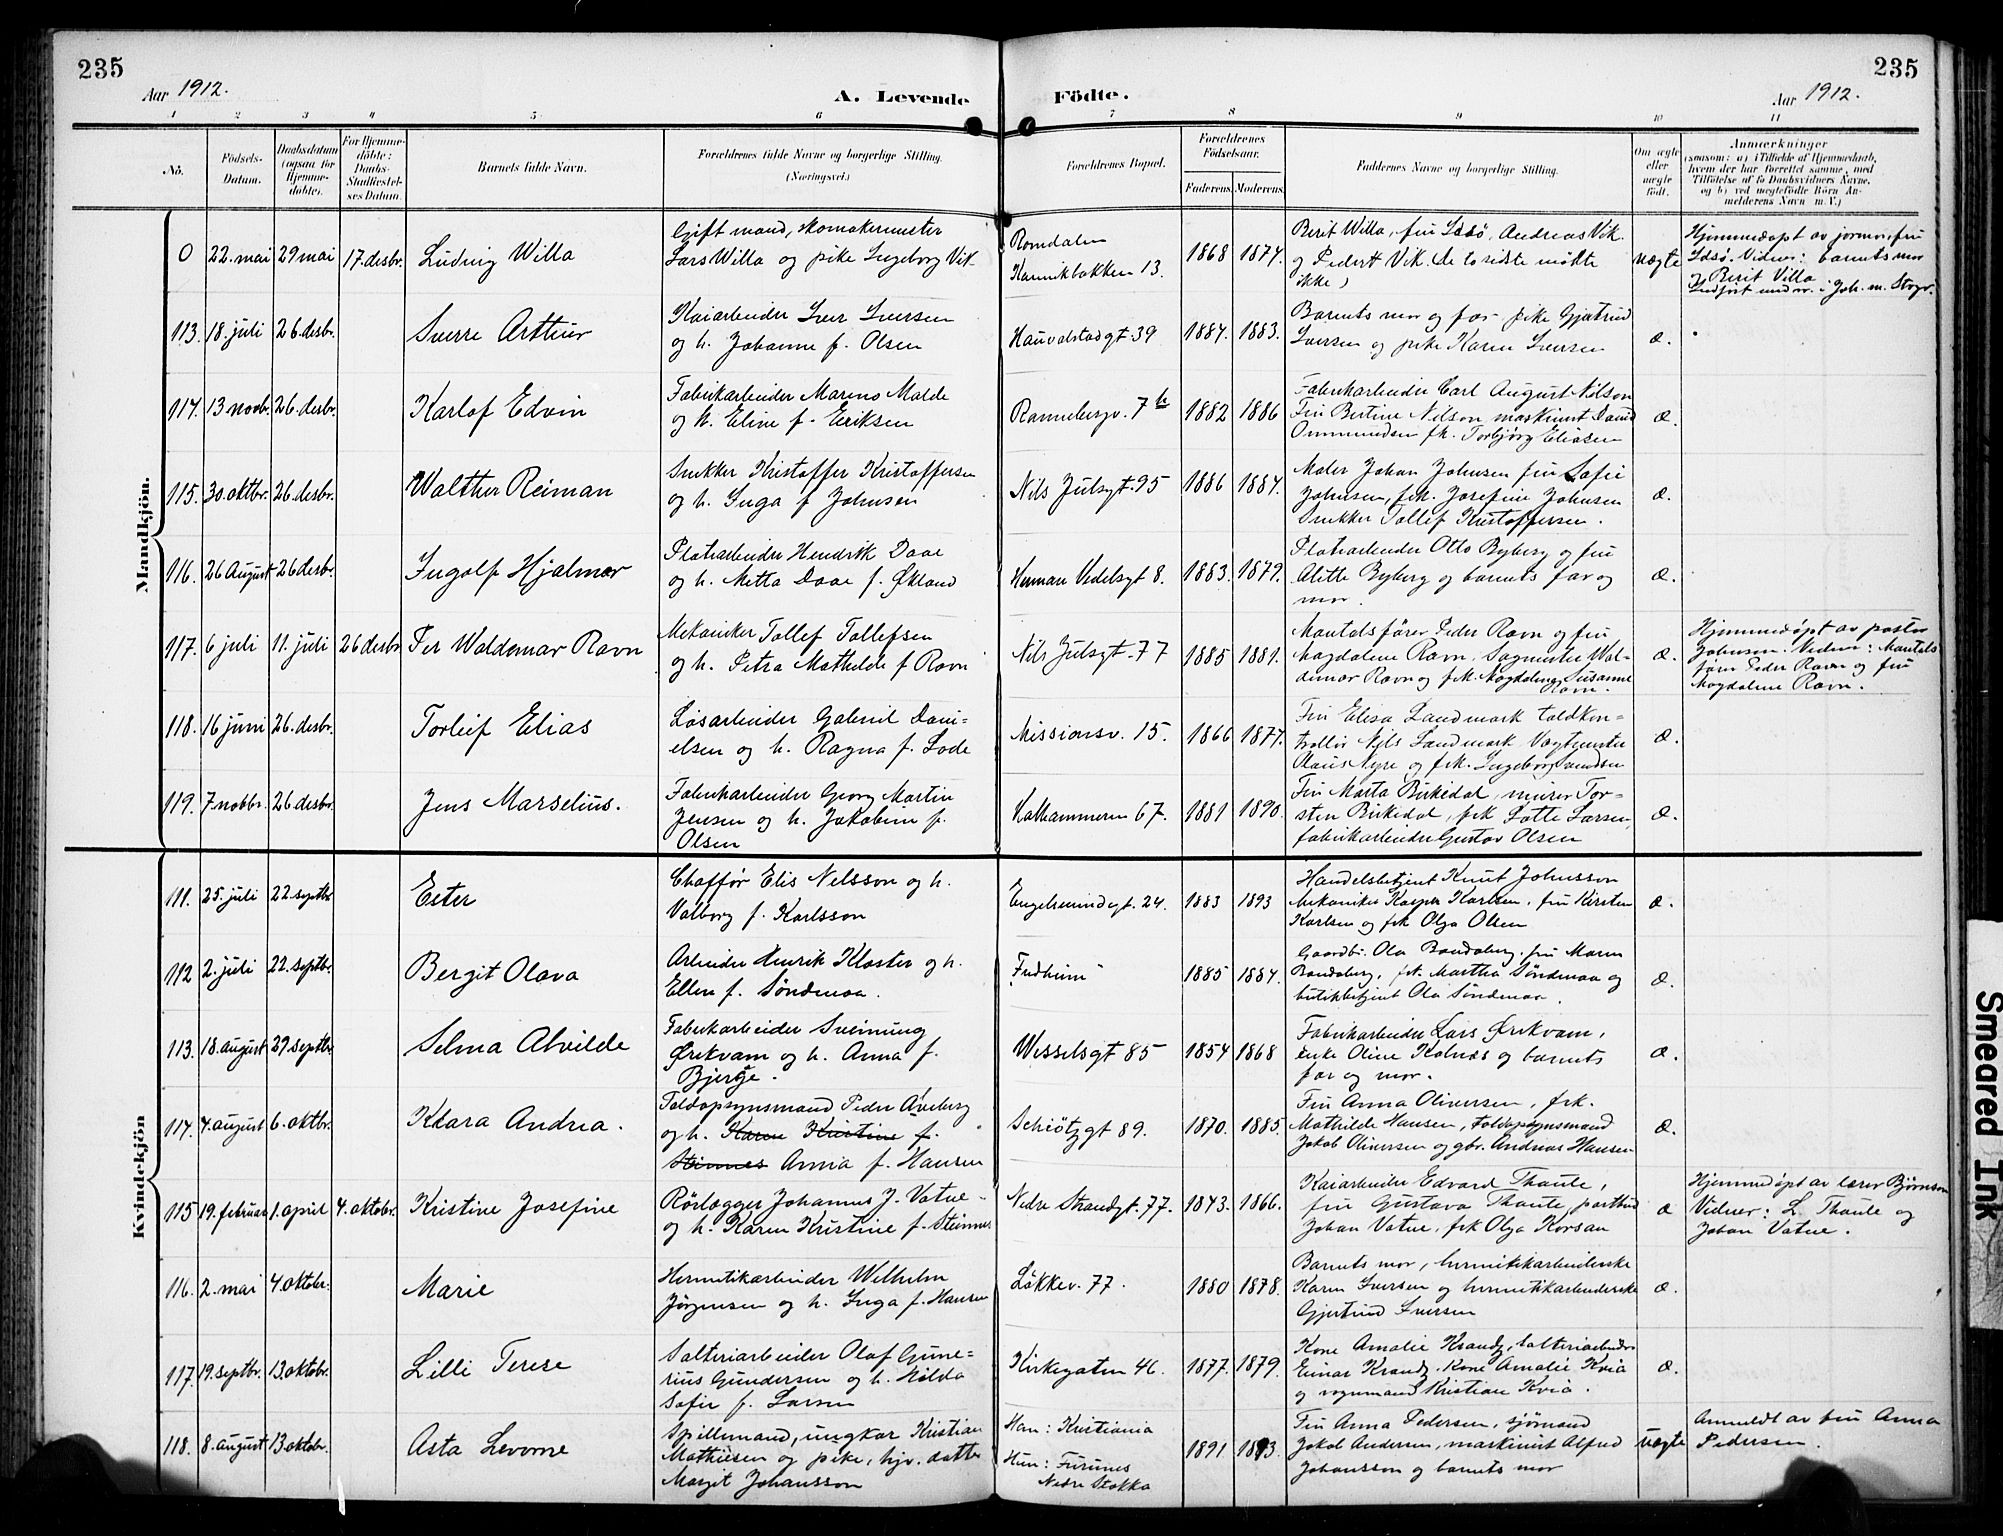 235
235
Aar 1912.
A. Levende Födte.
Aar 1912.
1 2 3 4 5 6 7 8 9 10 11
No.
Födsels-Datum.
Daabsdatum (ogsaa for Hjemme-døbte).
For Hjemme-döbte: Daabs-Stadfæstel-ses Datum.
Barnets fulde Navn.
Forældrenes fulde Navne og borgerlige Stilling. (Næringsvei.)
Forældrenes Bopæl.
Forældrenes Födselsaar.
Faderens. Moderens.
Faddernes Navne og borgerlige Stilling.
Om ægte eller uægte födt.
Anmærkninger
(saasom: a) i Tilfælde af Hjemmedaab,
hvem der har forrettet samme, med
Tilföielse af to Daabsvidners Navne,
og b) ved uægtefödte Börn An-
melderens Navn m. V.)
Mandkjön.
0 22. mai 29 mai 17. desbr. Ludvig Willa
Gift mand, skomakermester
Lars Willa og pike Ingeborg Vik
Romdalen
Kannikbakken 13.
1868 1874.
Berit Willa, fru Idsö, Andreas Vik
og Peder Vik. (de to sidste mødte
ikke)
uægte
Hjemmedøpt av jormor, fru
Idsø. Vidner: barnets mor
og Berit Villa
Indført under i Joh. m.
113. 18. juli 26. desbr. Sverre Arthur
Kaiarbeider Iver Iversen
og h. Johanne f. Olsen
Hauvalstadgt. 39
1884. 1883.
Barnets mor og far pike Gjertrud
Iversen og pike Karen Iversen
æ.
114. 13 novbr. 26. desbr. Karlof Edvin
Fabrikarbeider Marius Malde
og h. Eline f. Eriksen
Rannebergv. 7 b
1882 1886
Fabrikarbeider Carl August Nilson
Fru Bertine Nilson, maskinist David
Ommundsen frk. Torbjørg Eliasen
æ.
115. 30. oktbr. 26. desbr. Walther Reiman
Snekker Kristoffer Kristoffersen
og h. Inga f Johnsen
Nils Julsgt. 95
1886 1884.
Maler Johan Johnsen fru Sofie
Johnsen, frk. Josefine Johnsen
Snekker Tollef Kristoffersen.
æ.
116. 26 August 26 desbr. Ingolf Hjalmar
Platearbeider Hendrik Daae
og h. Metta Daae f. Økland
Herman Vedelsgt 8.
1883. 1879.
Platearbeider Otto Byberg og fru
Alette Byberg og barnets far og
mor.
æ.
117. 6 juli 11. juli 26 desbr Per Waldemar Ravn
Mekaniker Tollef Tollefsen
og h. Petra Mathilde f Ravn
Nils Julsgt. 77
1885 1881.
Mantalsfører Peder Ravn og fru
Magdalene Ravn. Sagmester Wal-
demar Ravn og frk. Magdalene Susanne
Ravn.
æ.
Hjemmedøpt av pastor
Johnsen. Vidner: Mantals
fører Peder Ravn og fru
Magdalene Ravn.
118. 16 juni 26. desbr. Torleif Elias
Løsarbeider Gabriel Dani-
elsen og h. Ragna f. Lode
Missionsv. 15.
1866 1877.
Fru Elisa Landmark toldkon-
trollør Nils Landmark Vægtmester
Claus Nyre og frk. Ingeborg
æ.
119. 7 novbr. 26 desbr. Jens Marselius.
Fabrikarbeider Georg Martin
Jensen og h. Jakobine f.
Olsen
Kalhammeren 67.
1881 1890.
Fru Marta Birkedal, murer Tor-
sten Birkedal, frk Lotte Larsen,
fabrikarbeider Gustav Olsen
æ.
Kvindekjön
111. 25. juli 22. septbr. Ester
Chafför Elis Nelsson og h.
Valborg f. Karlsson
Engelsmindegt. 24.
1883 1893
Handelsbetjent Knut Johnsson
Mekaniker Kasper Karlsen, fru Kirsten
Karlsen og frk Olga Olsen
æ.
112 2. juli 22. septbr. Bergit Olava
Arbeider Henrik Kloster og h.
Ellen f. Söndenaa.
Fredheim
1885 1884.
Gaardbr. Ola Randaberg. fru Maren
Randaberg, frk. Martha Söndenaa og
butikbetjent Ola Söndenaa.
æ.
113. 18. august 29 septbr. Selma Alvilde
Fabrikarbeider Sveinung
Ørekvam og h. Anna f.
Bjerge.
Wesselsgt 85
1854 1868
Fabrikarbeider Lars Ørekvam,
enke Oline Kolnæs og barnets
far og mor.
æ.
114. 4. august 6. oktbr. Klara Andrea.
Toldopsynsmand Peder Areberg
og h. Karen Kristine f.
Stinnes Anna f. Hansen
Schiötzgt 89.
1870. 1885.
Fru Anna Oliversen, frk.
Mathilde Hansen, Toldopsynsmand
Jakob Oliversen og gbr. Andreas Hansen
æ.
115 19. februar 1. april 4. oktober. Kristine Josefine
Rörlægger Johannes J. Vatne
og h. Karen Kristine f. Steinnes
Nedre Strandgt. 77.
1843. 1866.
Kaiarbeider Edvard Thaule,
fru Gustava Thaule, postbud
Johan Vatne, frk Olga Korsan
æ
Hjemmedøpt av lærer Bjørnson
Vidner: L. Thaule og
Johan Vatne.
116. 2. mai 4. oktobr. Marie
Hermetikarbeider Wilhelm
Jørgensen og h. Inga f. Hansen
Løkkev. 77.
1880 1878.
Barnets mor, hermetikarbeiderske
Karen Iversen og hermetikarbeiderske
Gjertrud Iversen
æ.
117. 19. septbr. 13. oktobr. Lilli Terese
Salteriarbeider Olaf Gune-
rius Gundersen og h. Hilda
Sofie f. Larsen
Kirkegaten 46.
1877. 1879.
Kone Amalie Krandz, salteriarbeider
Einar Krandz. Kone Amalie Kvia
og vognmand Kristian Kvia.
æ.
118. 8. august 13. oktobr. Asta Levorne
Spillemand, ungkar Kristian
Mathiesen og pike, hjv. datter
Margit Johansson
Han: Kristiania
Hun: Furunes
Nedre Stokka
1891 1893.
Fru Anna Pedersen, sjömand
Jakob Andersen, maskinist Alfred
Johansson og barnets mor
uægte
Anmeldt av fru Anna
Pedersen.
Smeared Ink